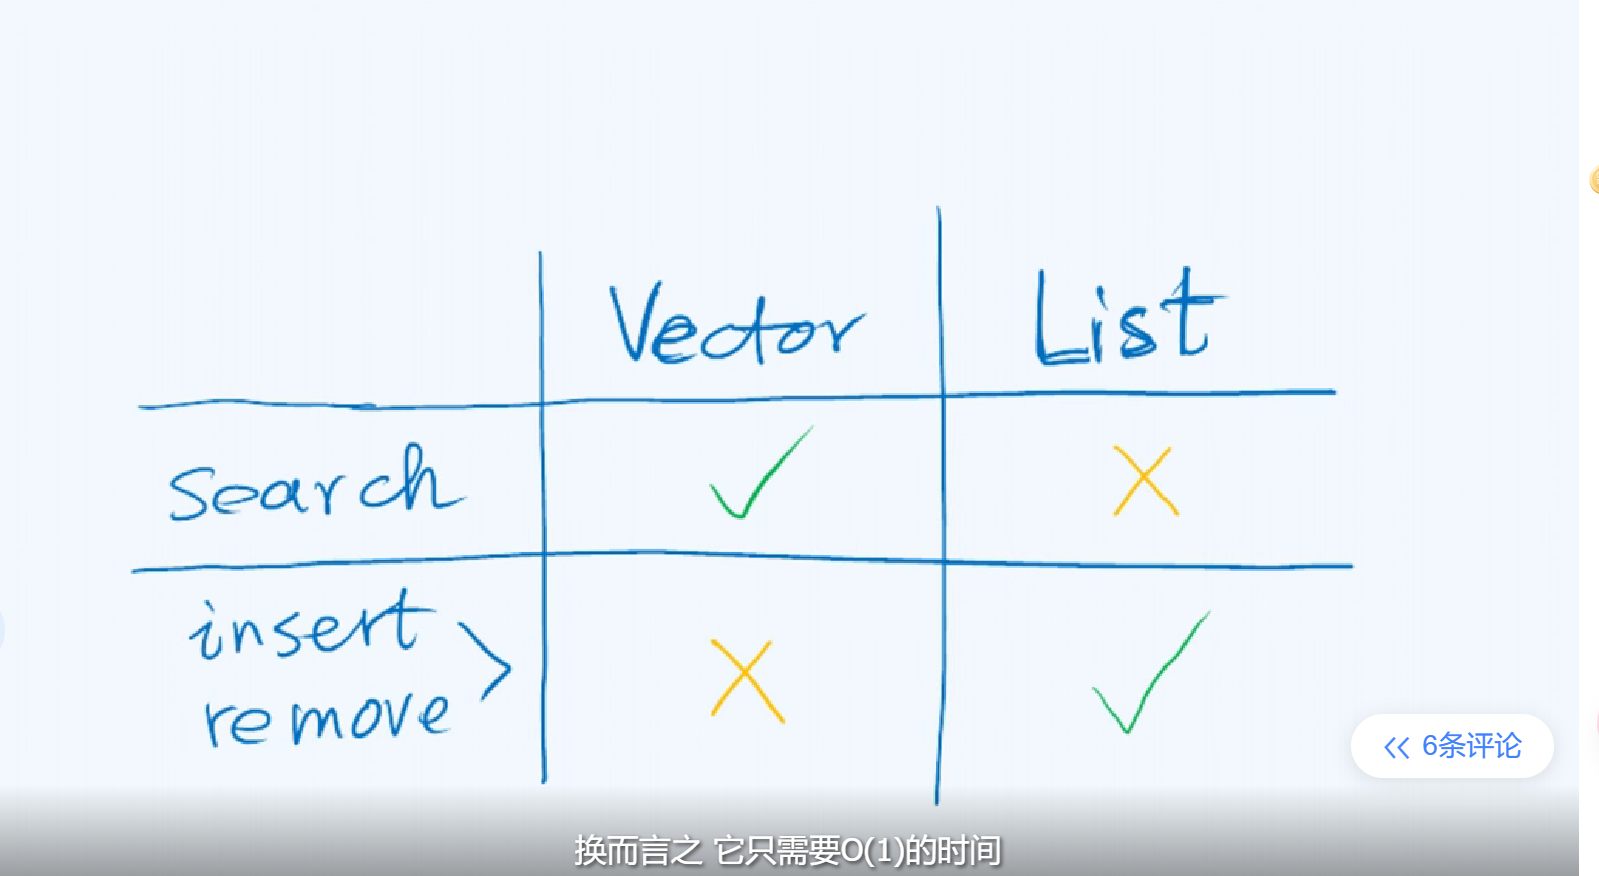 Vector List
search
insert
remove
6条评论
换而言之 它只需要O(1)的时间